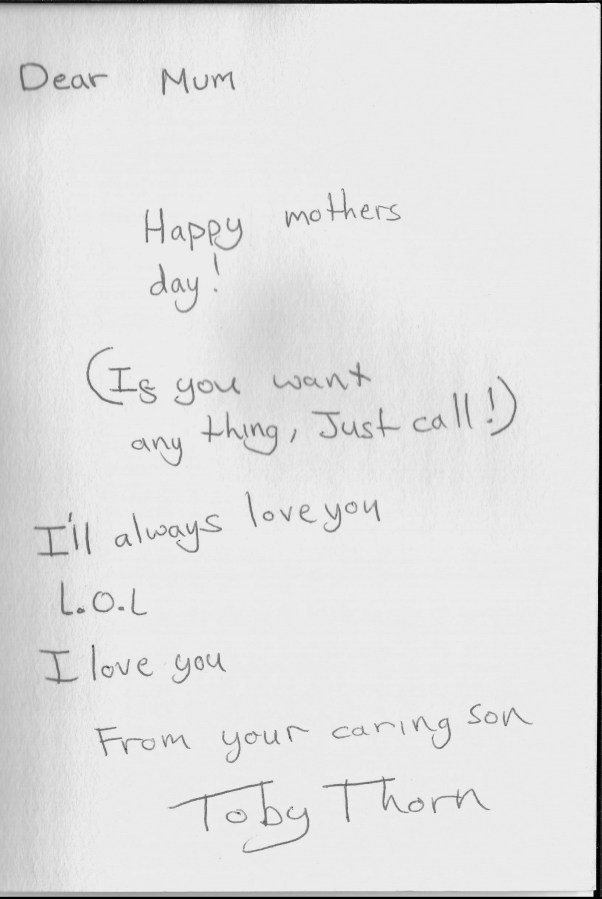 Dear Mum
Happy mothers
day!
(If you want
any thing, Just call!)
I'll always love you
L.O.L
I love you
From your caring son
Toby Thorn